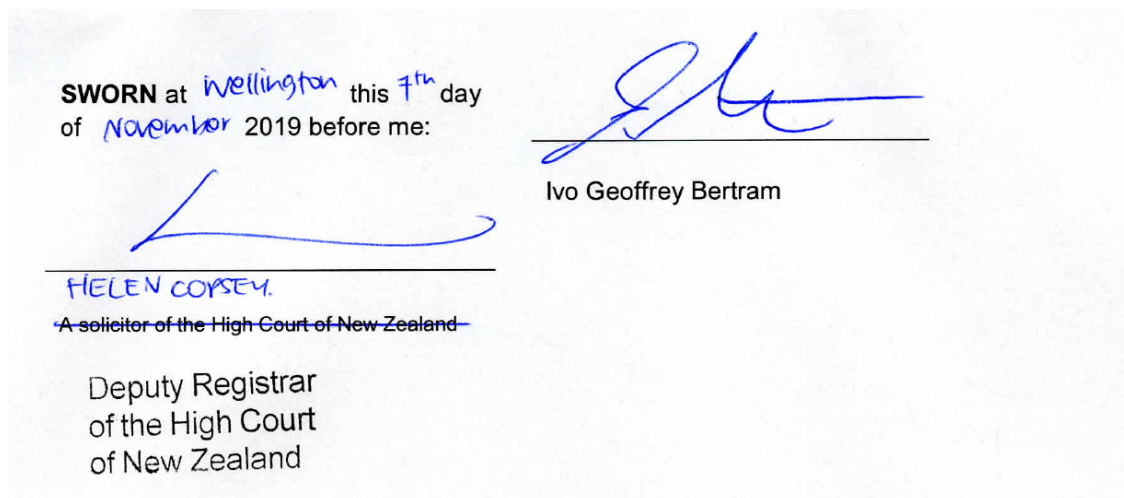 SWORN at Wellington this 7th day
of November 2019 before me:
Ivo Geoffrey Bertram
HELEN COPSEY.
A solicitor of the High Court of New Zealand
Deputy Registrar
of the High Court
of New Zealand